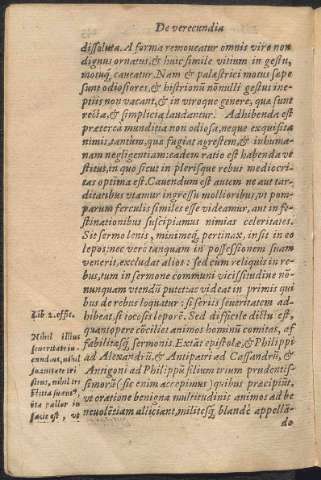 De verecundia
dissoluta. A forma remoueatur omnis viro non
dignus ornatus, & huic simile vitium in gestu,
motuq́; caueatur. Nam & palæstrici motus sæpe
sunt odiosiores, & histrionũ nõnulli gestus ine-
ptiis non vacant, & in vtroque genere, quæ sunt
recta, & simplicia laudantur. Adhibenda est
præterea munditia non odiosa, neque exquisita
nimis, tantum, quæ fugiat agrestem, & inhuma-
nam negligentiam: eadem ratio est habenda ve
stitus, in quo sicut in plerisque rebus mediocri-
tas optima est. Cauendum est autem ne aut tar-
ditatibus vtamur ingressu mollioribus, vt pom-
parum ferculis similes esse videamur, aut in fe-
stinationibus suscipiamus nimias celeritates.
Sit sermo lenis, minimeq́; pertinax, insit in eo
lepos: nec verò tanquam in possessionem suam
venerit, excludat alios: sed cum reliquis in re-
bus, tum in sermone communi vicissitudine nõ-
nunquam vtendũ putet: ac videat in primis qui
bus de rebus loquatur: si seriis seueritatem ad-
hibeat, si iocosis leporẽ. Sed difficile dictu est,
quantopere cõciliet animos hominũ comitas, af
fabilitasq́; sermonis. Extãt epistolæ, & Philippi
ad Alexandrũ, & Antipatri ad Cassandrũ, &
Antigoni ad Philippũ filium trium prudentis-
simorũ (sic enim accepimus) quibus præcipiũt,
vt oratione benigna multitudinis animos ad be
neuolẽtiam alliciant, militesq́; blandè appellã-
do
Lib 2. offic.
Nihil illius
seueritate iu-
cundius, nihil
iuanitate tri
stius, nihil tri
stitia
ẽta pallor in
facie est, vt